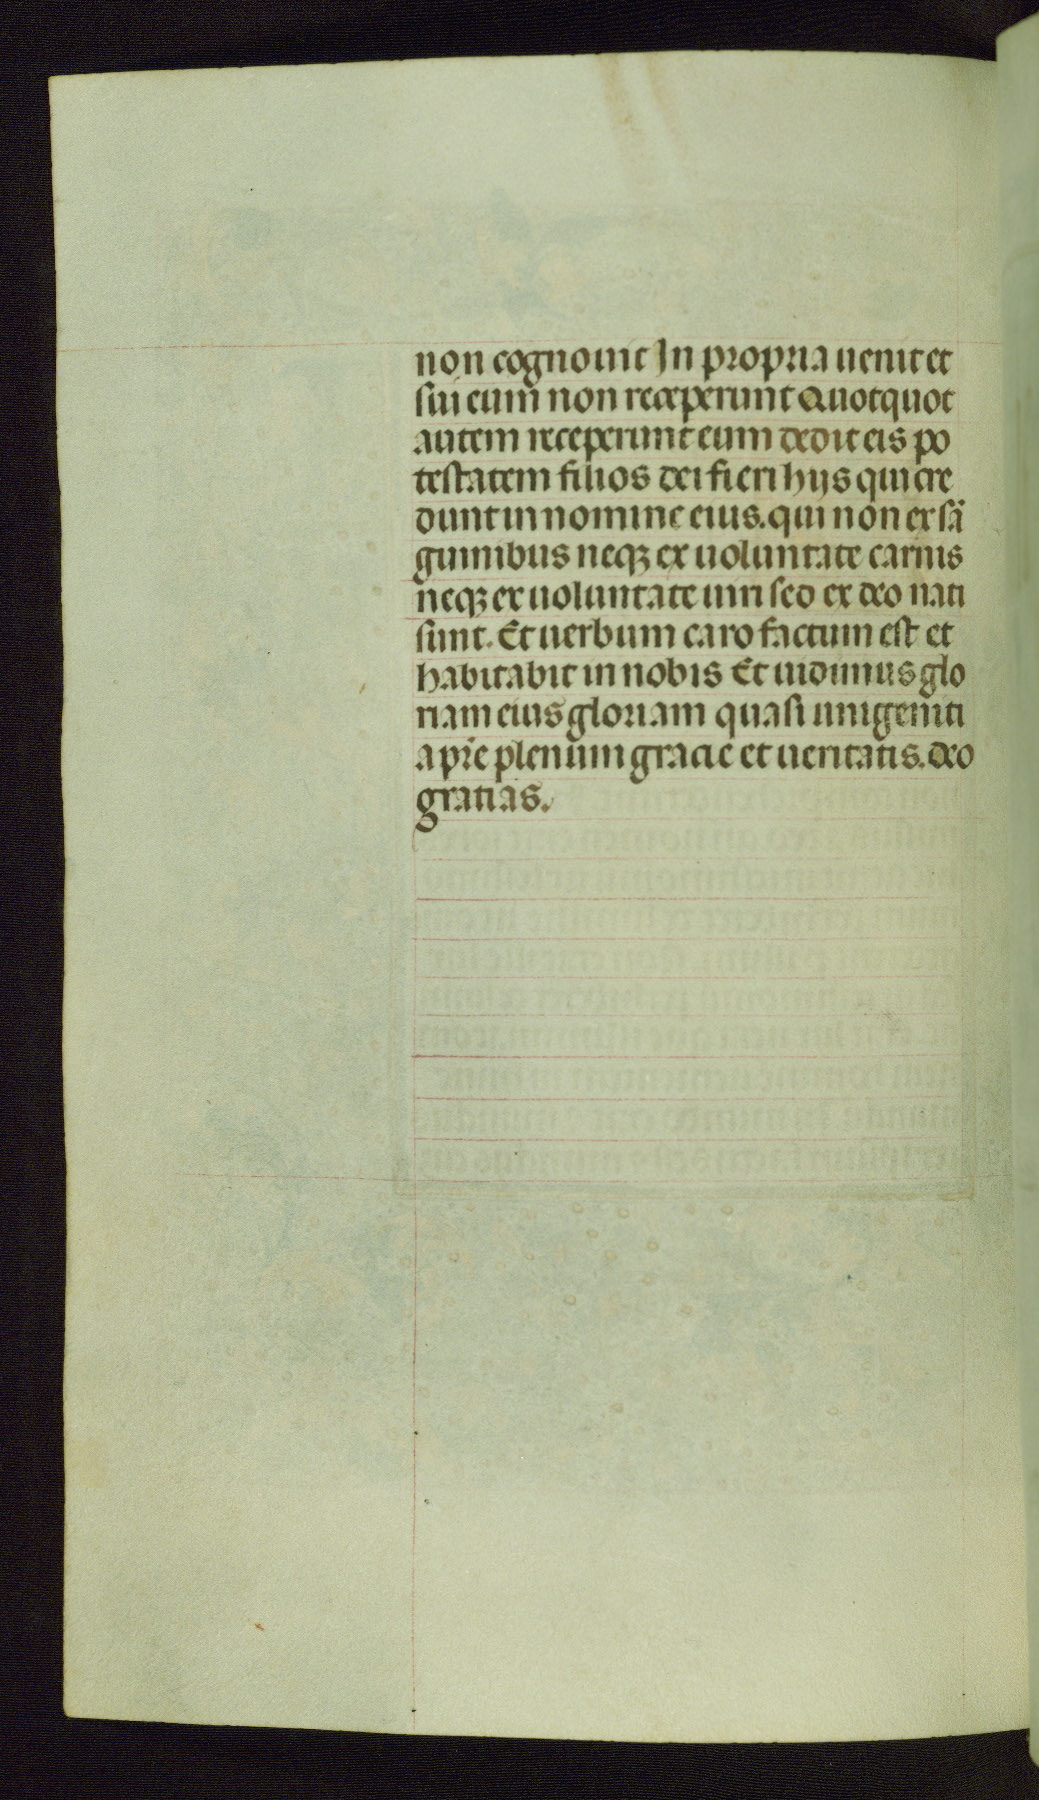 non cognouit In propria uenit et
sui eum non receperunt Quotquot
autem receperunt eum dedit eis po
testatem filios dei fieri hijs qui cre
dunt in nomine eius. qui non ex sā
guinibus neqꝫ ex uoluntate carnis
neqꝫ ex uoluntate uiri sed ex deo nati
sunt. Et uerbum caro factum est et
habitabit in nobis Et uidimus glo
riam eius gloriam quasi unigeniti
a pr̄e plenum gracie et ueritatis. deo
gratias.